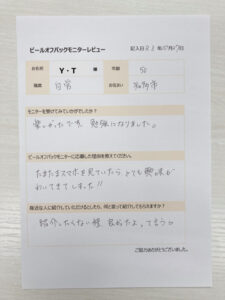 ピールオフパックモニターレビュー
記入日 R
お名前 Y・T 様 年齢 50
職業 自営 お住まい
モニターを受けてみていかがでしたか?
楽しかったです。勉強になりました。
ピールオフパックモニターに応募した理由を教えてください。
たまたまスマホを見ていたら、とても興味が
わいてきてしまった!!
身近な人に紹介していただけるとしたら、何と言って紹介してもらえますか?
紹介したくない程 良かったよ。って言う
ご協力ありがとうございました。